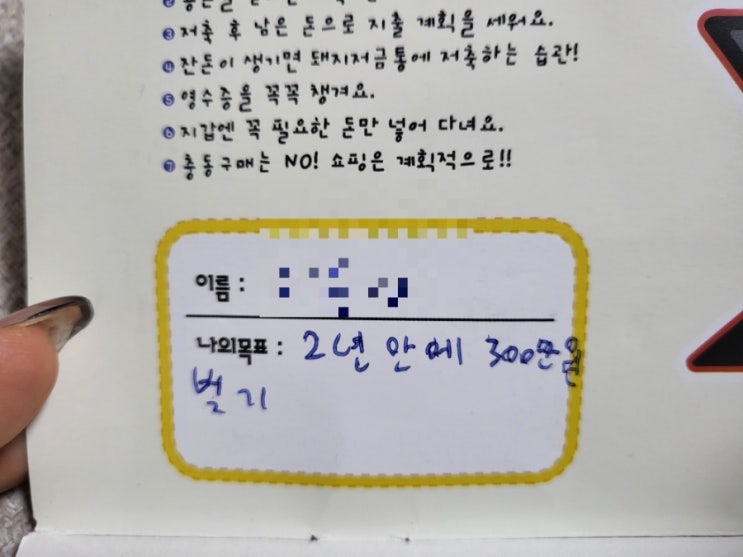 ③ 저축 후 남은 돈으로 지출 계획을 세워요.
④ 잔돈이 생기면 돼지저금통에 저축하는 습관!
⑤ 영수증을 꼭꼭 챙겨요.
⑥ 지갑엔 꼭 필요한 돈만 넣어 다녀요.
⑦ 충동구매는 NO! 쇼핑은 계획적으로!!
이름 :
나의목표 : 2년 안에 300만원
벌기